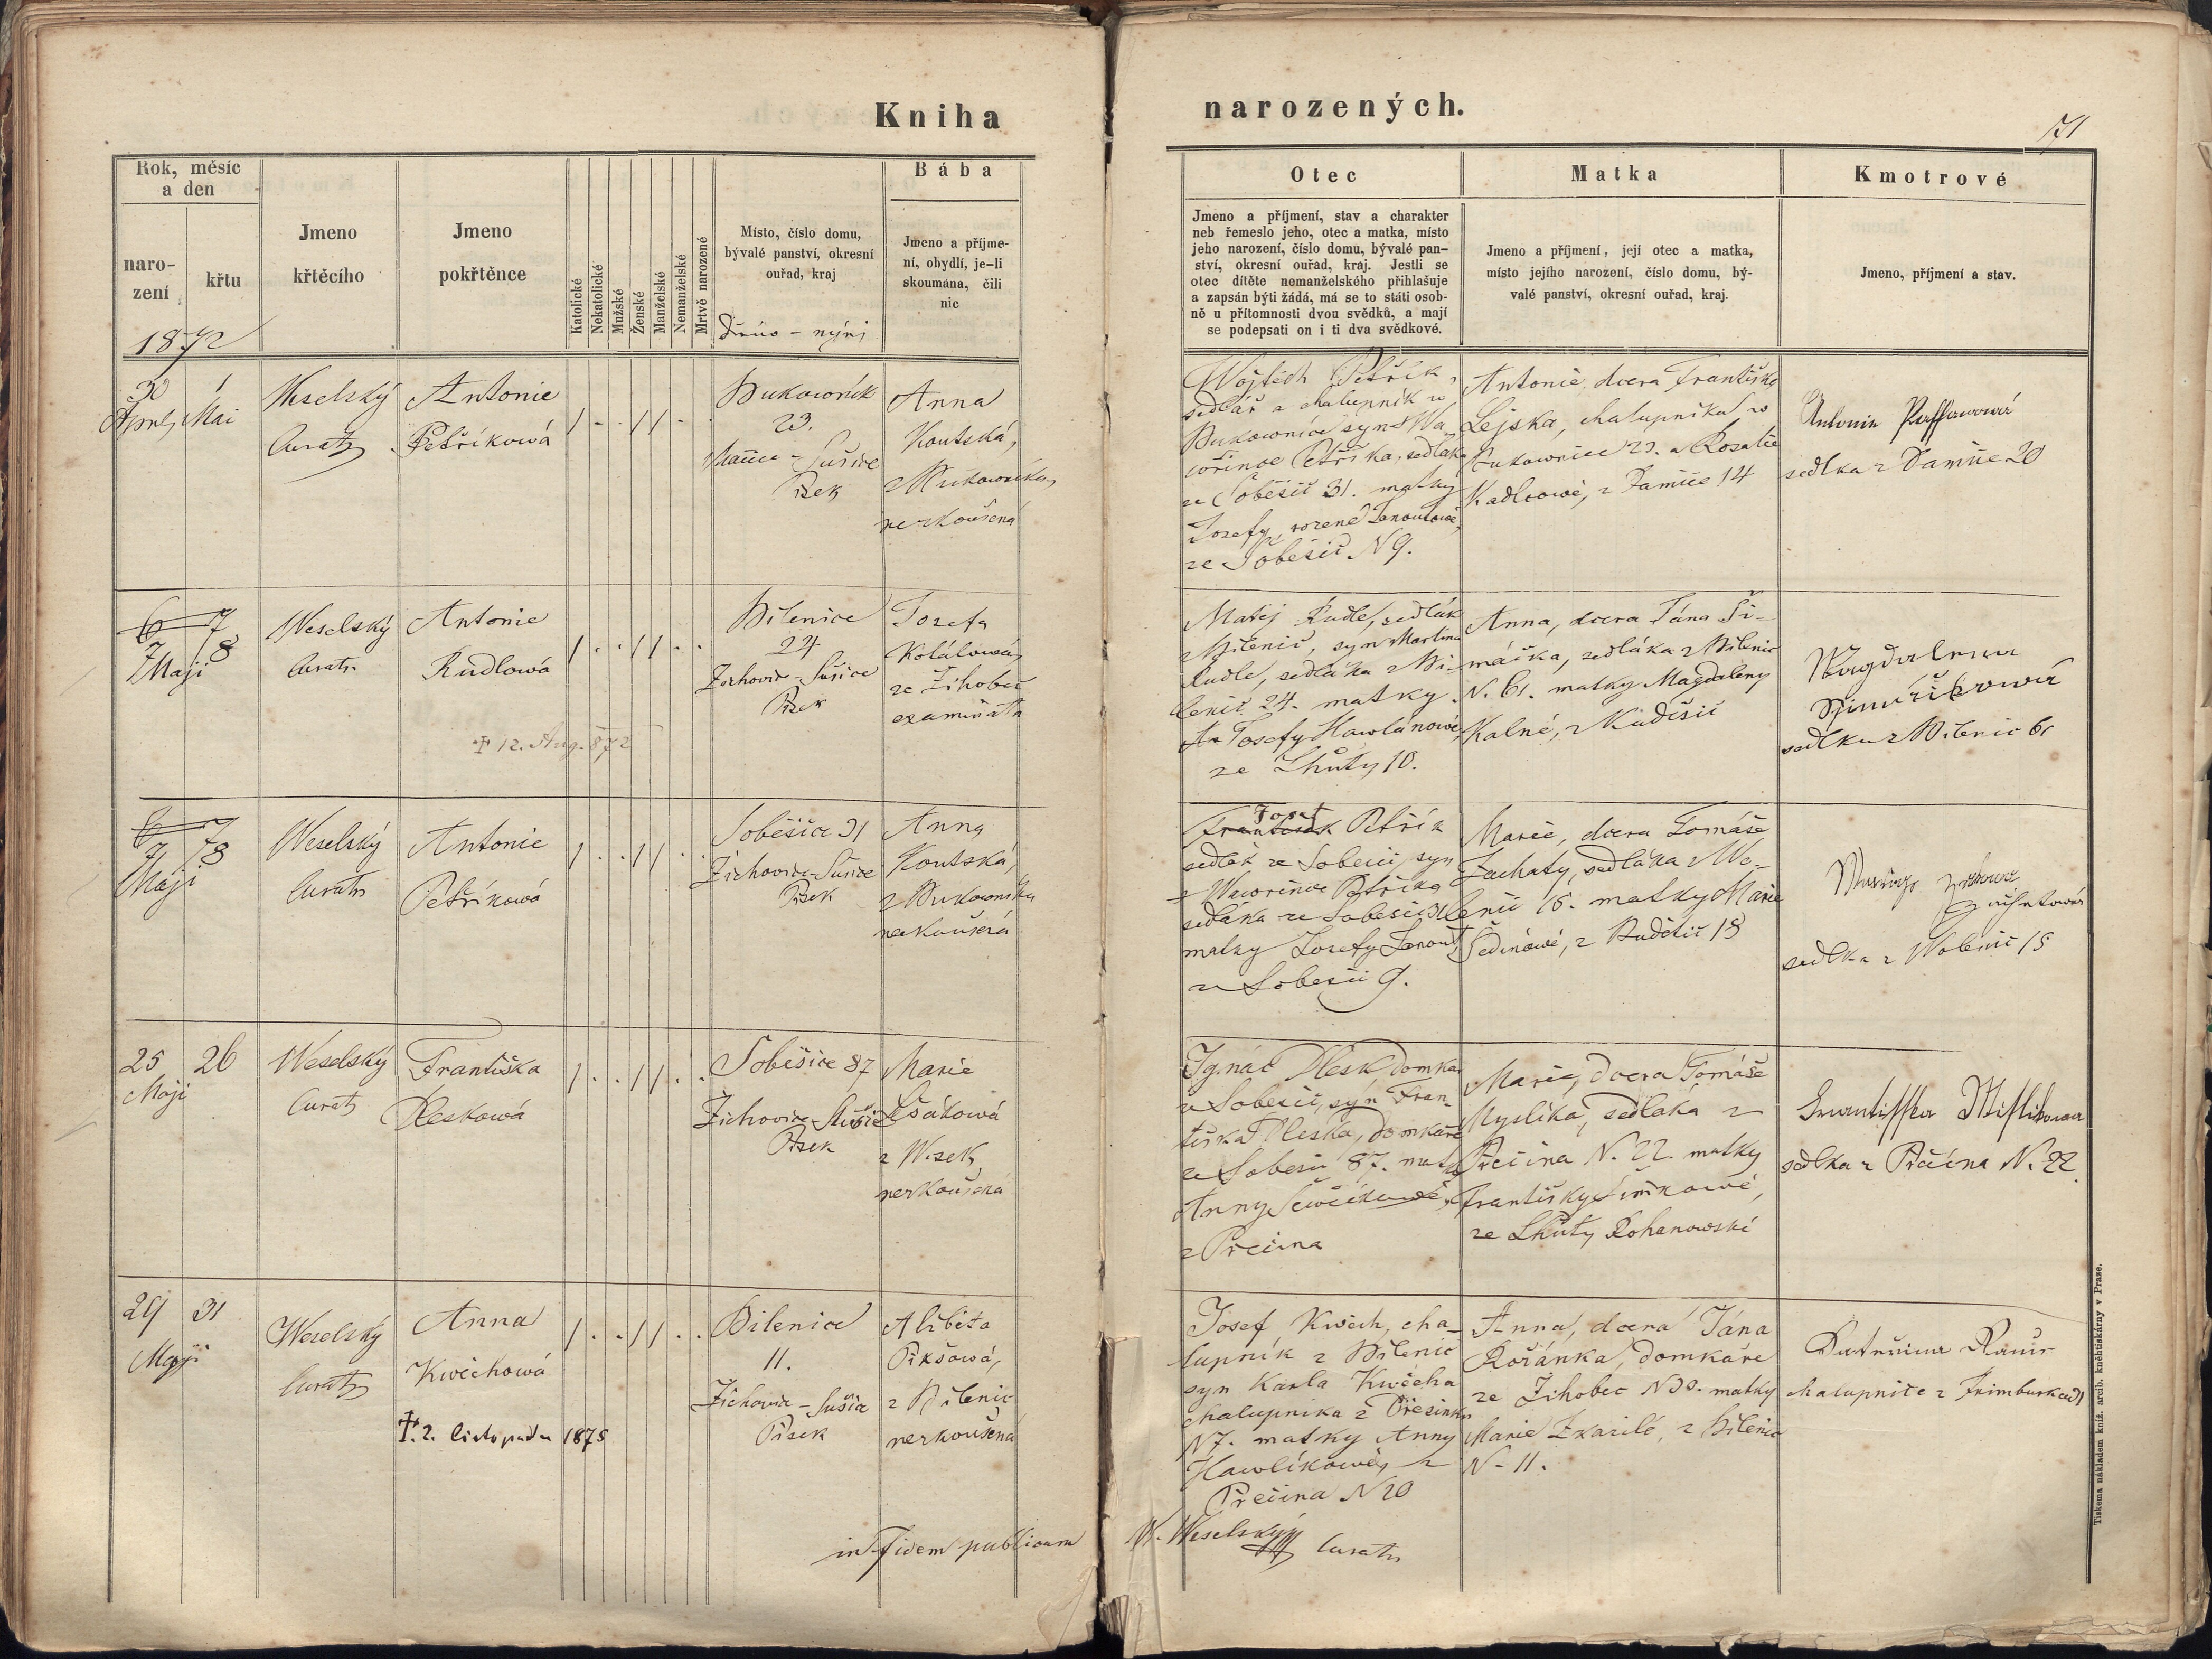 Kniha
narozených.
71
Rok, měsíc
a den
naro-
zení
křtu
Jmeno
křtěcího
Jmeno
pokřtěnce
Katolické
Nekatolické
Mužské
Ženské
Manželské
Nemanželské
Mrtvě narozené
Místo, číslo domu,
bývalé panství, okresní
ouřad, kraj
Bába
Jmeno a příjme-
ní, obydlí, je-li
skoumána, čili
nic
Otec
Jmeno a příjmení, stav a charakter
neb řemeslo jeho, otec a matka, místo
jeho narození, číslo domu, bývalé pan-
ství, okresní ouřad, kraj. Jestli se
otec dítěte nemanželského přihlašuje
a zapsán býti žádá, má se to státi osob-
ně u přítomnosti dvou svědků, a mají
se podepsati on i ti dva svědkové.
Matka
Jmeno a příjmení, její otec a matka,
místo jejího narození, číslo domu, bý-
valé panství, okresní ouřad, kraj.
Kmotrové
Jmeno, příjmení a stav.
1872
30
April
1
Mai
Weselský
Curat
Antonie
Petříková
Bukowník
23.
Sušice
Písek
Anna
Koutská,
z Bukowníka,
nezkoušená
Wojtěch Petřík,
sedlář a chalupník w
Bukowníce syn Wa-
wřince Petříka, sedláka
ze Soběšic 31. matky
Josefy, rozené
ze Soběšic N 9.
Antonie, dcera Františka
Lejska, chalupníka w
Bukownice 23. a Rosalie
Kadlcowé, z Damíče 14
Antonie
sedlka z Damíče 20
6 7
7 8
Maji
Weselský
Curat
Antonie
Rudlowá
✝ 12. Aug. 872
Bilenice
24
Žichovice - Sušice
Písek
Josefa
Kolálowá,
ze Žihobec
examinata
Matěj Rudle, sedlák
z Bilenic, syn Martina
Rudle, sedláka z Bi-
lenic 24. matky
Josefy Hawlanowé,
ze Lhůty 10.
Anna, dcera Jána Ši-
máčka, sedláka z Bilenic
N. 61. matky Magdaleny
Kalné, z Kadešic
Magdalena
sedlka z Bilenic 61
6 7
7 8
Máji
Weselský
Curat
Antonie
Petříkowá
Soběšice 31
Žichovice - Sušice
Písek
Anna
Koutská,
z Bukowníka
nezkoušená
Josef
František Petřík
sedlák ze Soběšic, syn
Wawřince Petříka
sedláka ze Soběšic 31
matky Josefy
z Soběšic 9.
Marie, dcera Tomáše
Zachaty, sedláka z Wo-
lenic 15. matky Marie
Šedinowé, z Budětic 18
sedlka z Wolenic 15
25 26
Maji
Weselský
Curat
Františka
Pleskowá
Soběšice 87
Žichovice - Sušice
Písek
Marie
Lsákowá
z Wosek,
nezkoušená
Ignác Plesk domkář
z Soběšic, syn Fran-
tiška Pleska, domkáře
ze Soběšic 87. matky
Anny Šewčíkowé,
z Přečína
Marie, dcera Tomáše
Myslíka, sedláka z
Přečína N. 22 matky
Františky Šimkowé,
ze Lhůty Rohanowské
Frantisska Misslikowa
sedlka z Přečína N. 22.
29 31
Maji
Weselský
Curat
Anna
Kwěchowá
✝. 2. listopadu 1875
Bilenice
11.
Žichovice - Sušice
Písek
Alžběta
Pikšowá,
z Bilenic
nezkoušená
Josef Kwěch, cha-
lupník z Bilenic
syn Karla Kwěcha
chalupníka z Březinky
N 7. matky Anny
Hawlíkowé, z
Přečína N 20
Anna, dcera Jána
Rořánka, domkáře
ze Žihobec N 30. matky
Marie Zkazilé, z Bilenic
N. 11.
chalupnice z
in fidem publicam
W. Weselský
Curat
Tiskema nákladem kníž. arcib. kněhtiskárny v Praze.